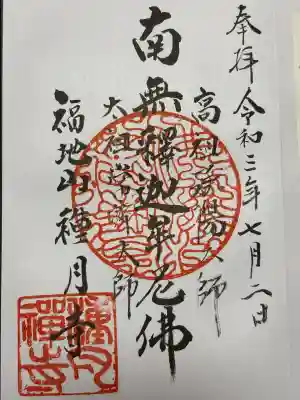 奉拝 令和三年七月二日
高祖承陽大師
南無釋迦牟尼佛
太祖常済大師
福地山種月寺
種月禅寺